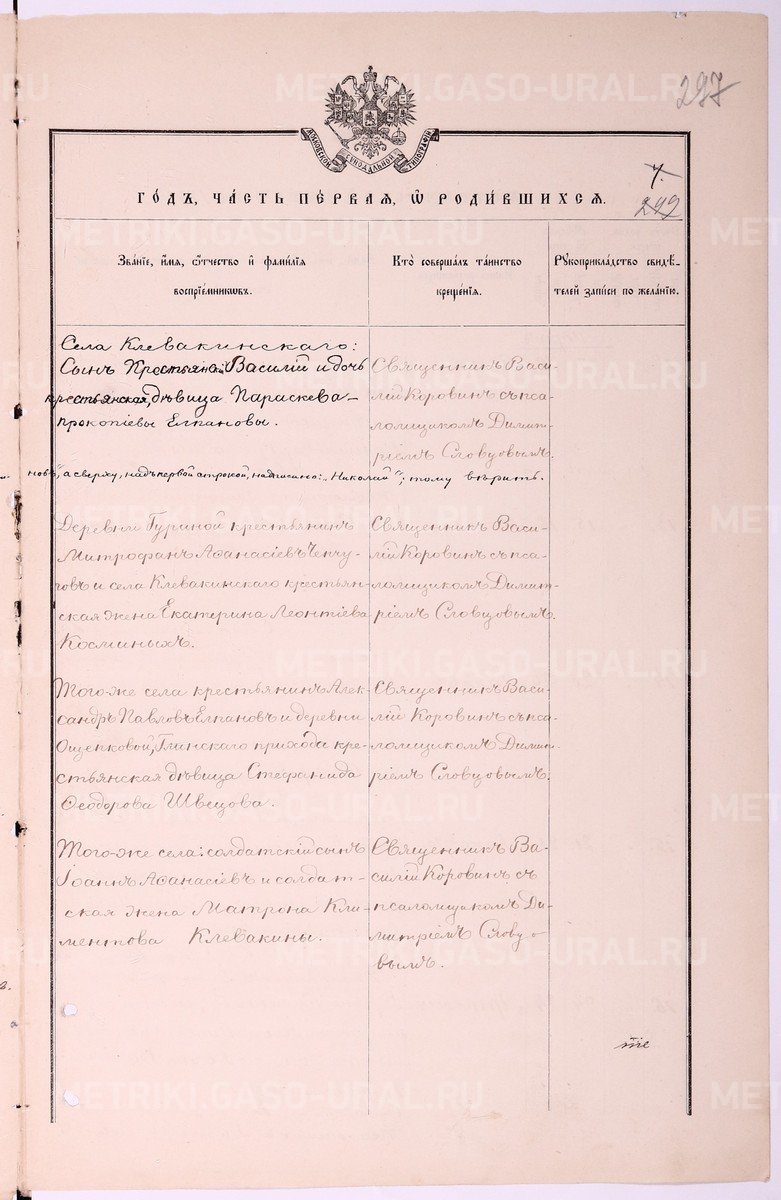 297
МОСКОВСКОЙ СѴНОДАЛЬНОЙ ТИПОГРАФІИ
4.
299
ГОДЪ, ЧАСТЬ ПЕРВАЯ, Ѡ РОДИВШИХСЯ.
Званіе, имя, отчество и фамилія
воспріемниковъ.
Кто совершалъ таинство
крещенія.
Рукоприкладство свидѣ-
телей записи по желанію.
Села Клевакинскаго:
Сынъ Василій и дочь
крестьянская, дѣвица Параскева
Прокопіевы Елпановы.
Священникъ Васи-
лій Коровинъ съ пса-
ломщикомъ Димит-
ріемъ Словцовымъ.
новъ", а сверху, надъ первой строкой, надписано: „Николай"; тому вѣрить.
Деревни Гуриной крестьянинъ
Митрофанъ Аѳанасіевъ Чепчу-
говъ и села Клевакинскаго крестьян-
ская жена Екатерина Леонтіева
Косминыхъ.
Священникъ Васи-
лій Коровинъ съ пса-
ломщикомъ Димит-
ріемъ Словцовымъ.
Того-же села крестьянинъ Алек-
сандръ Павловъ Елпановъ и деревни
Ощепковой, Глинскаго прихода кре-
стьянская дѣвица Стефанида
Ѳеодорова Швецова.
Священникъ Васи-
лій Коровинъ съ пса-
ломщикомъ Димит-
ріемъ Словцовымъ.
Того-же села: солдатскій сынъ
Іоаннъ Аѳанасіевъ и солдат-
ская жена Матрона Кли-
ментова Клевакины.
Священникъ Ва-
силій Коровинъ съ
псаломщикомъ Ди-
митріемъ Словцо-
вымъ.
METRIKI.GASO-URAL.RU